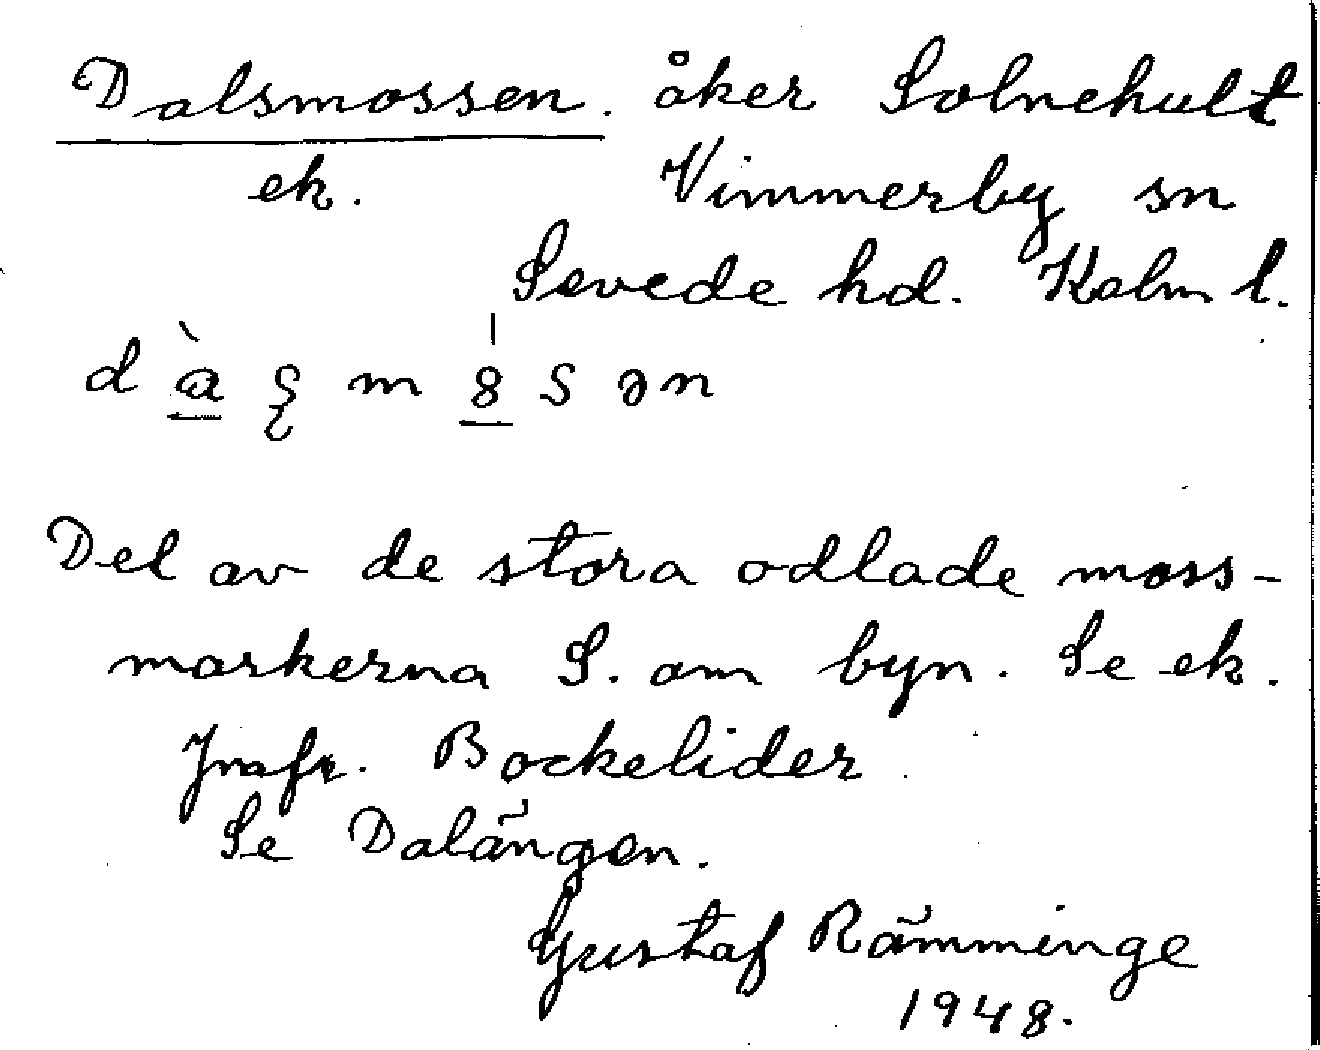 Dalsmossen. åker Solnehult
ek. Vimmerby sn
Sevede hd. Kalm l.
Del av de stora odlade moss-
markerna S. om byn. Se ek.
Jnafr. Bockelider.
Se Dalängen.
Gustaf Rämminge
1948.